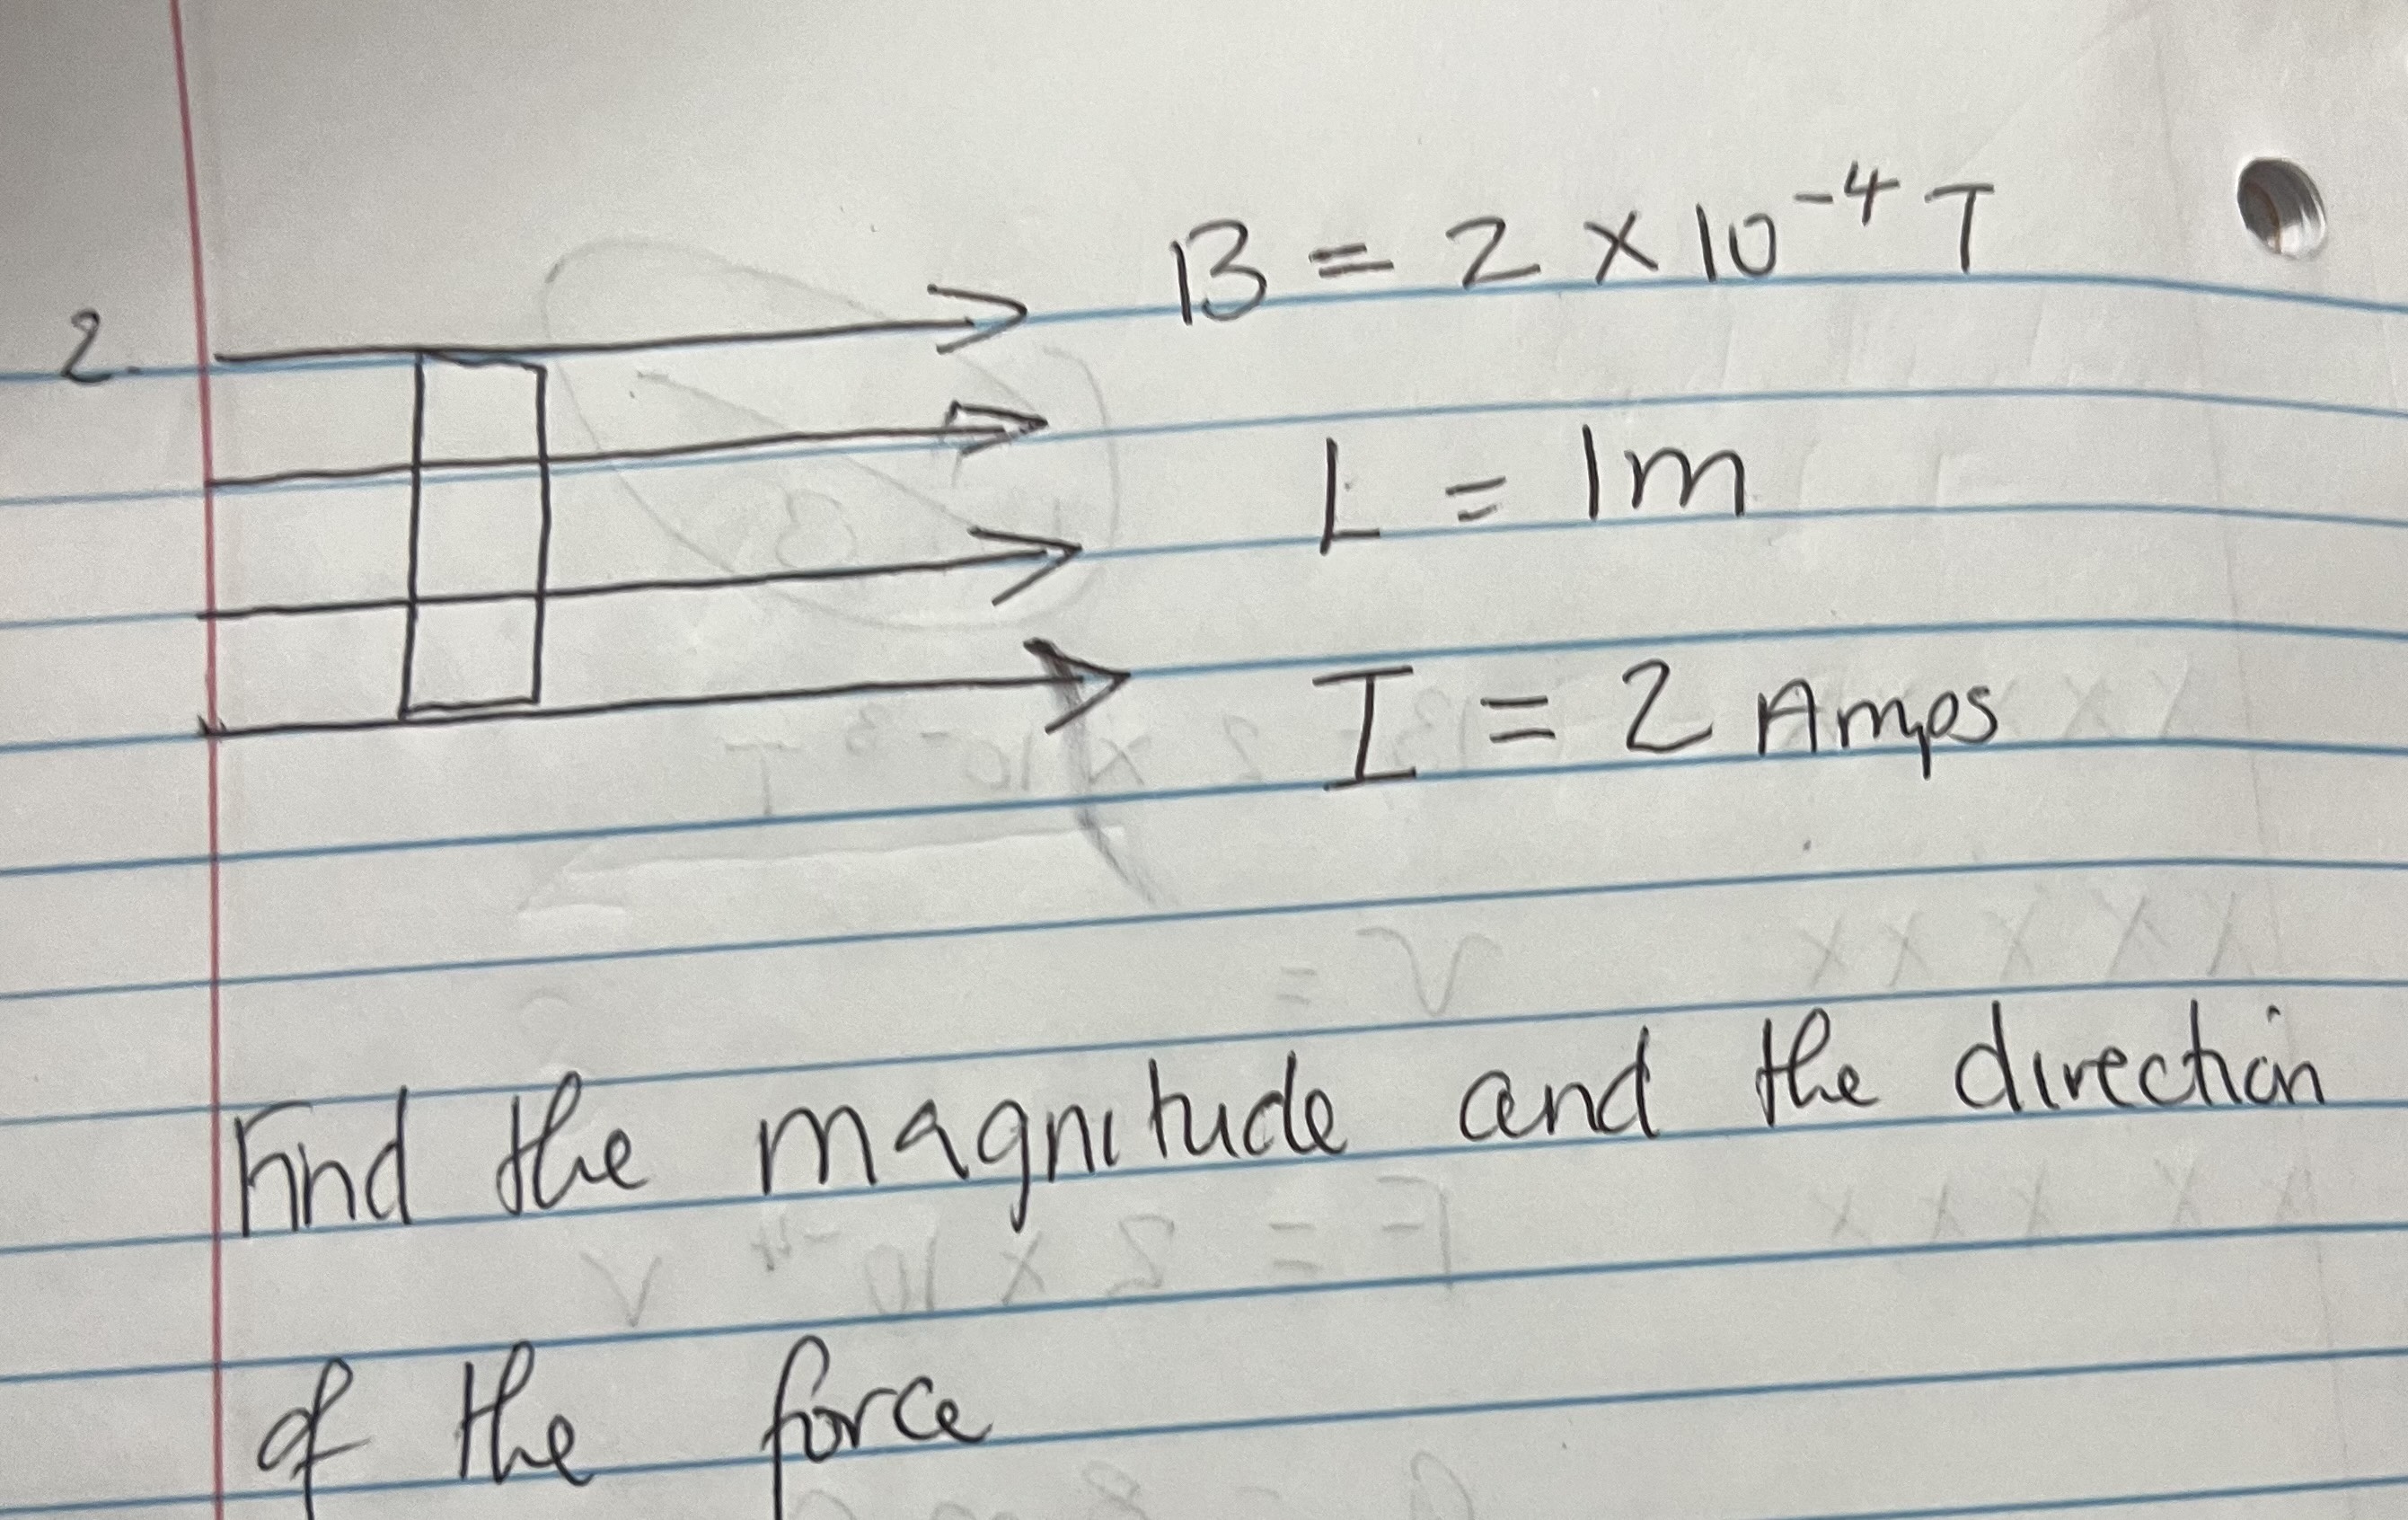 2.
B = 2 × 10⁻⁴ T
L = 1m
I = 2 Amps
Find the magnitude and the direction
of the force